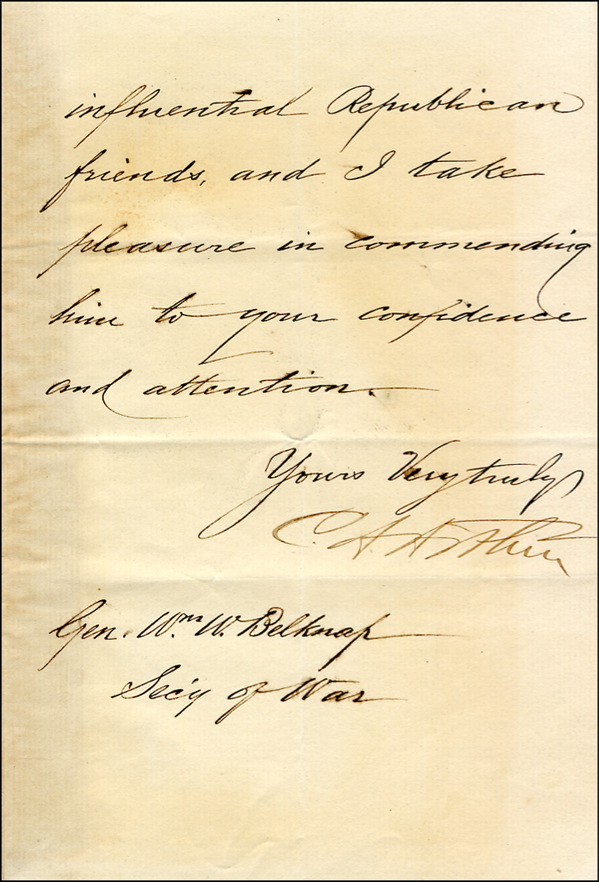 influential Republican
friends, and I take
pleasure in commending
him to your confidence
and attention.
Yours Very truly
C. A. Arthur
Gen. Wm. W. Belknap
Sec'y of War